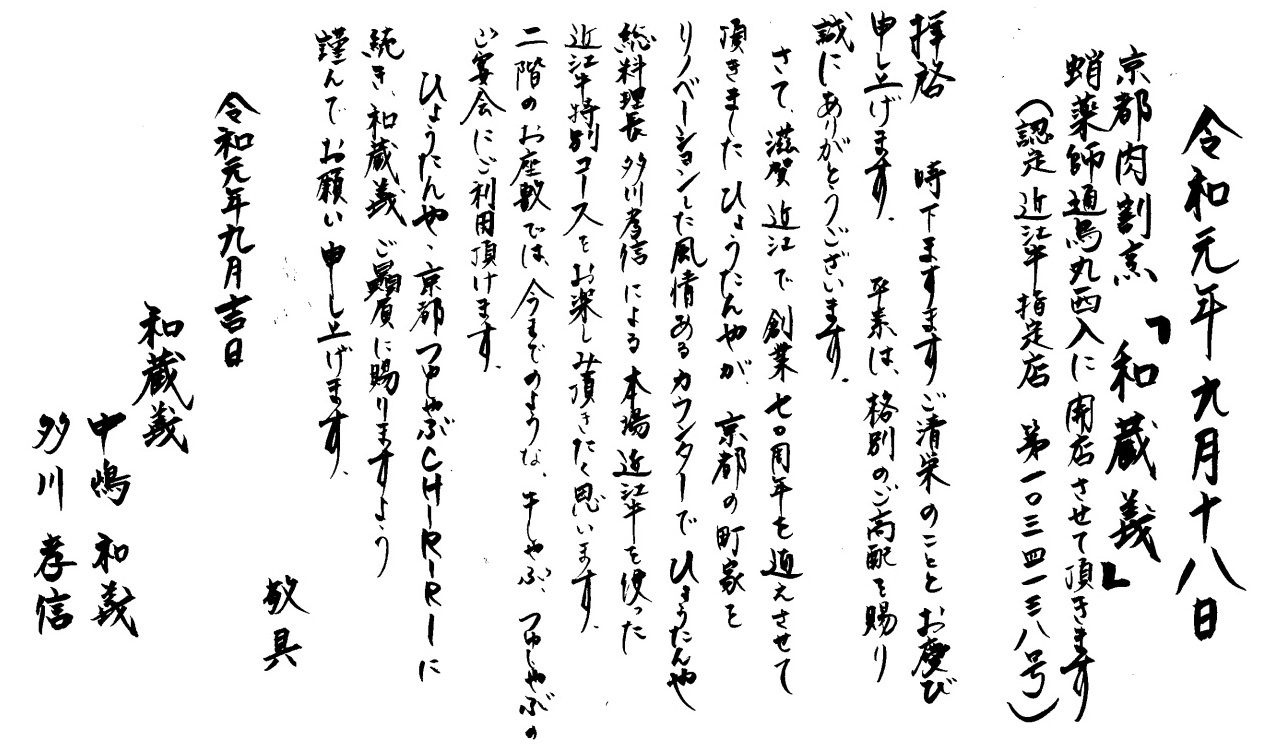 令和元年九月十八日
京都肉割烹「和蔵義」
蛸薬師通烏丸西入に開店させて頂きます
(認定近江牛指定店 第一〇三四一三八号)
拝啓 時下ますますご清栄のこととお慶び
申し上げます。 平素は、格別のご高配を賜り
誠にありがとうございます。
さて、滋賀近江で創業七〇周年を迎えさせて
頂きましたひょうたんやが、京都の町家を
リノベーションした風情あるカウンターでひょうたんや
総料理長多川孝信による本場近江牛を使った
近江牛特別コースをお楽しみ頂きたく思います。
二階のお座敷では、今までのような、牛しゃぶ、つゆしゃぶの
ご宴会にご利用頂けます。
ひょうたんや、京都つゆしゃぶCHIRIRIに
続き、和蔵義ご贔屓に賜りますよう
謹んでお願い申し上げます。
敬具
令和元年九月吉日
和蔵義
中嶋和義
多川孝信